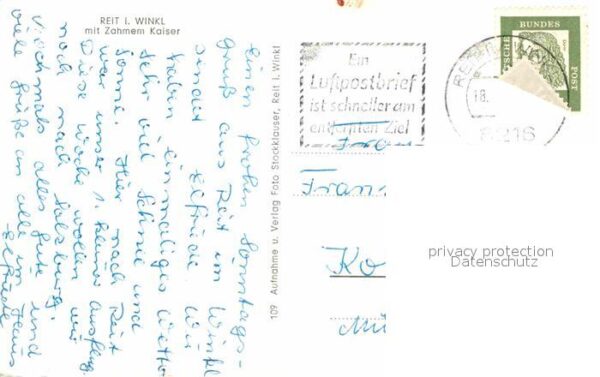 REIT i. WINKL
mit Zahmem Kaiser
Einen frohen Sonntags-
gruß aus Reit im Winkl
sendet Elfriede. Wir
haben einmaliges Wetter
sehr viel Schnee und
Sonne. Hier nach Reit
war unser 1. Ausflug.
Diese Woche wollen wir
noch nach Salzburg.
Nochmals alles Gute und
viele Grüße an alle im Haus
Elfriede
109 Aufnahme u. Verlag Foto Stockklauser, Reit i. Winkl
Ein
Luftpostbrief
ist schneller am
entfernten Ziel
REIT
18.
8216
DEUTSCHE BUNDESPOST
Fra
Fran
Ko
Mü
privacy protection
Datenschutz